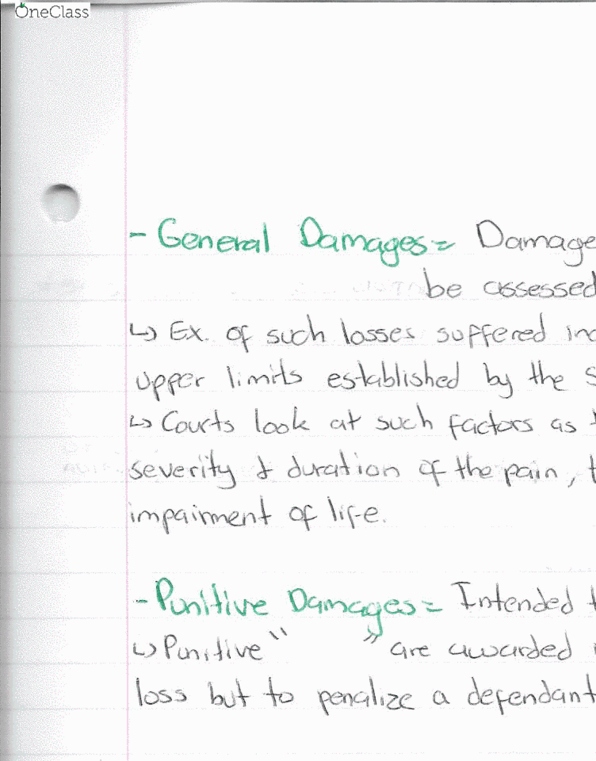 OneClass
- General Damages = Damage
be assessed
↳ Ex. of such losses suffered inc
upper limits established by the S
↳ Courts look at such factors as t
severity & duration of the pain, t
impairment of life.
- Punitive Damages = Intended t
↳ Punitive " " are awarded
loss but to penalize a defendant